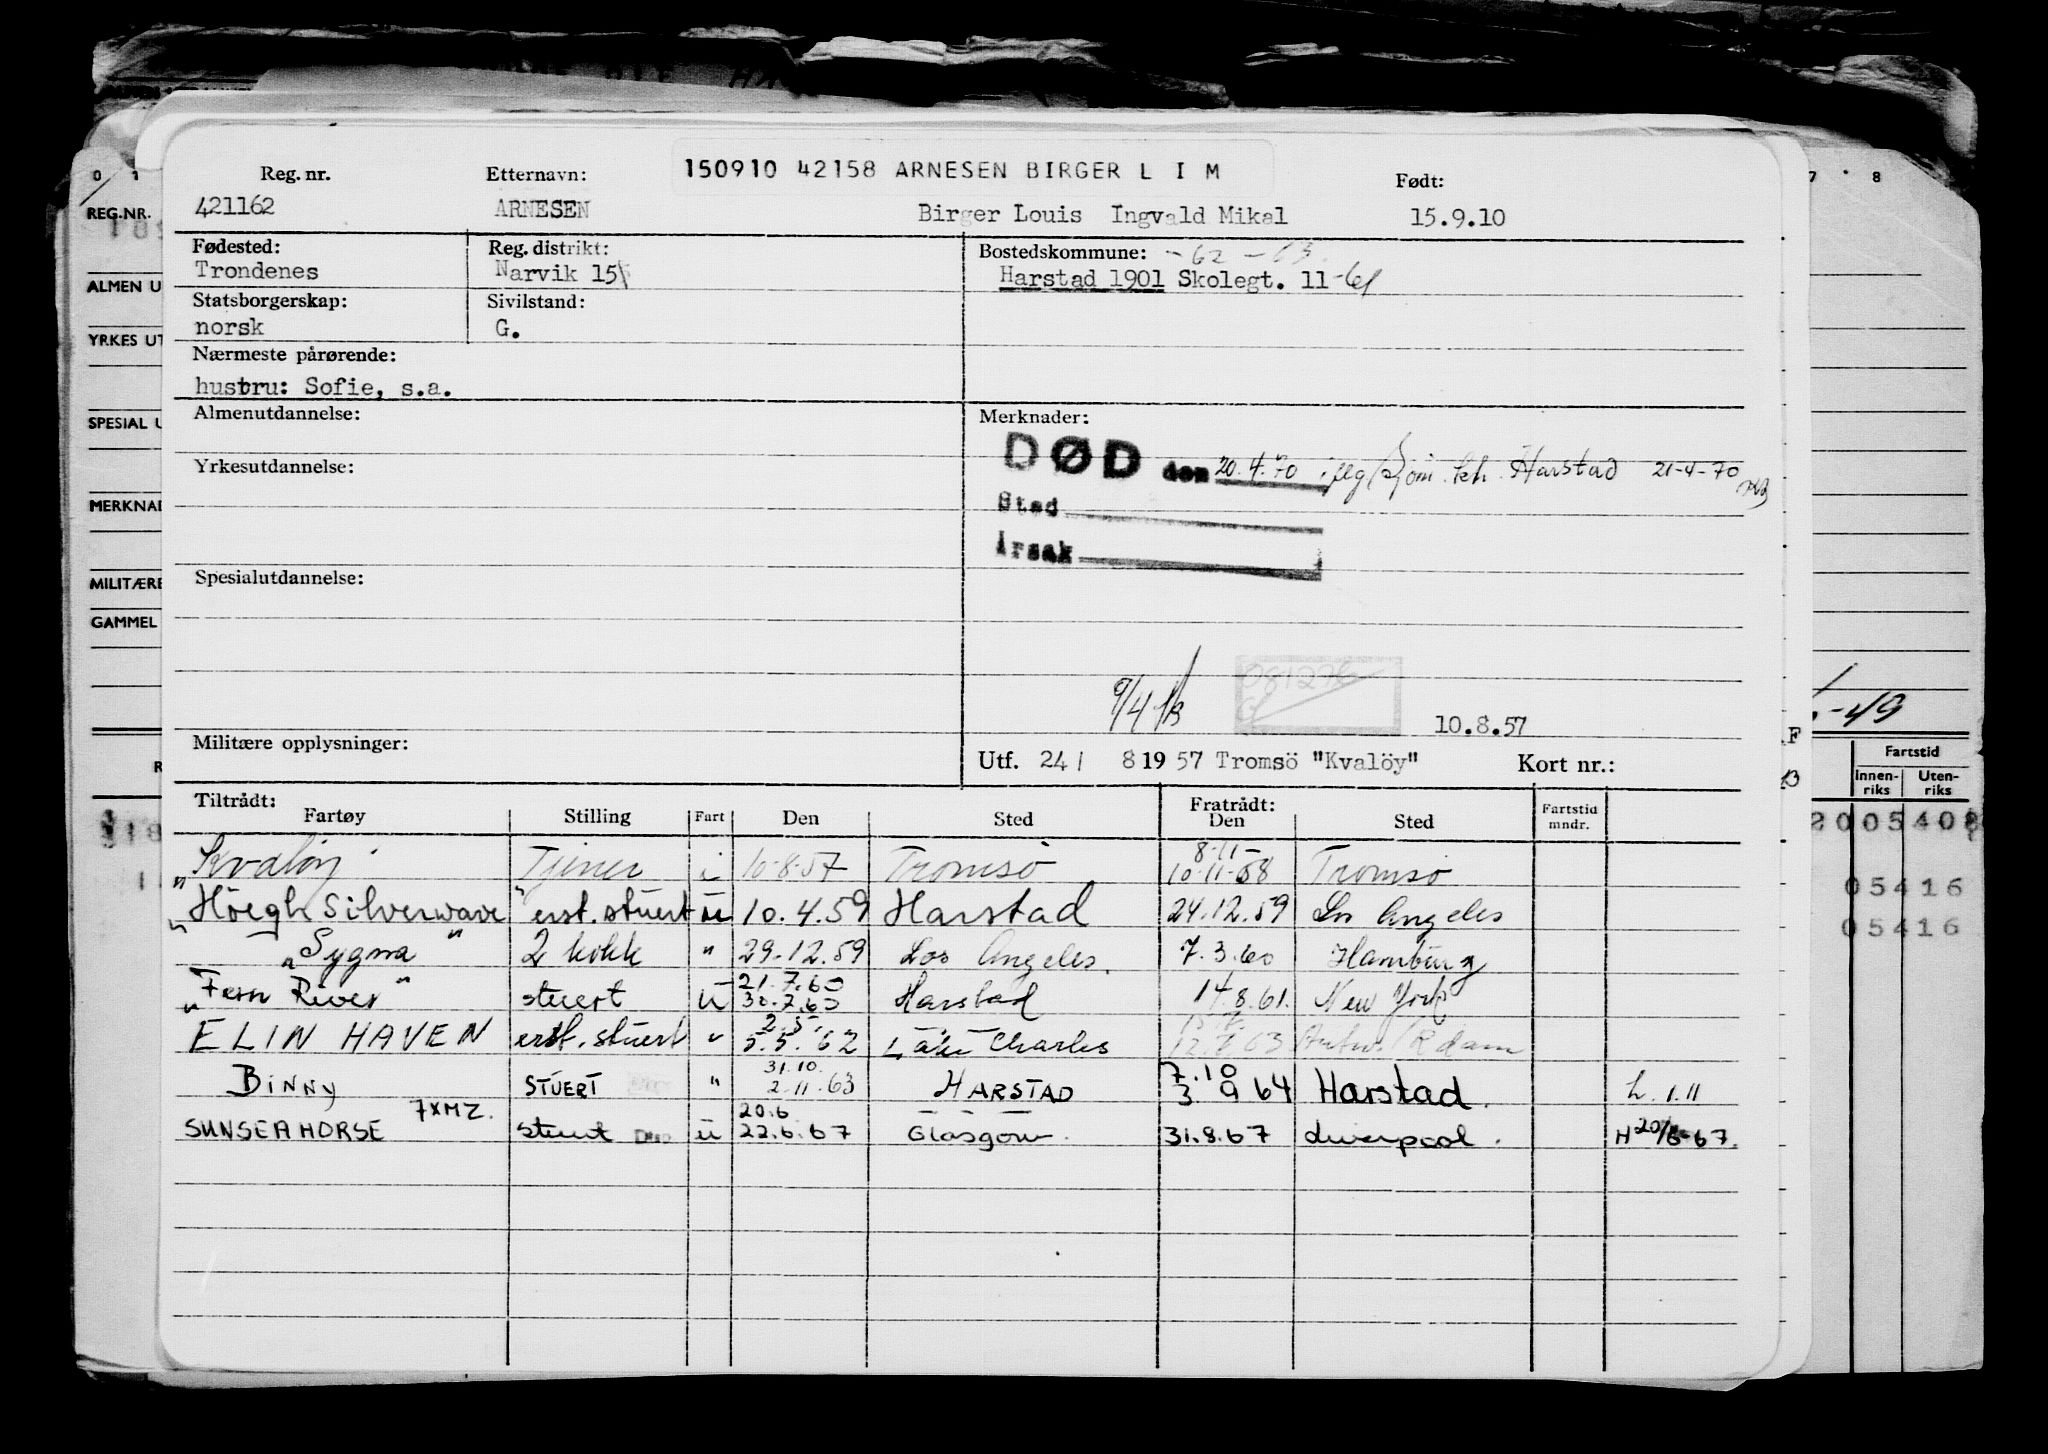 150910 42158 ARNESEN BIRGER L I M
Reg. nr. Etternavn: Født:
421162 ARNESEN Birger Louis Ingvald Mikal 15.9.10
Fødested: Reg. distrikt: Bostedskommune: -62 -63.
Trondenes Narvik 15 Harstad 1901 Skolegt. 11 -61
Statsborgerskap: Sivilstand:
norsk G.
Nærmeste pårørende:
hustru: Sofie, s.a.
Almenutdannelse: Merknader:
DØD den 20.4.70 Harstad 21-4-70
Yrkesutdannelse:
Sted
Årsak
Spesialutdannelse:
081276
10.8.57
Militære opplysninger: Utf. 24/ 8 19 57 Tromsö "Kvalöy" Kort nr.:
Tiltrådt: Fratrådt:
Fartøy Stilling Fart Den Sted Den Sted Fartstid mndr.
Kvaløy Tjener i 10-8-57 Tromsö 8-11- 10-11-58 Tromsö
"Höegh Silverwave" erst. stuert u 10.4.59 Harstad 24.12.59 Los Angeles
"Sygna" 2 kokk " 29-12.59 Los Angeles. 7.3.60 Hamburg
"Fern River" stuert u 21.7.60 30.7.60 Harstad 14.8.61. New York
ELIN HAVEN erst. stuert " 2.5. 5.5.62 Lake Charles 63 Antw./R dam
BINNY STUERT " 31.10. 2-11-63 HARSTAD 7.10 3 9 64 Harstad. L.1.11
SUNSEAHORSE 7XMZ. stuert u 20.6 22.6.67 Glasgow. 31.8.67 Liverpool. H 20/6-67.
REG.NR.
ALMEN U
YRKES UT
SPESIAL U
MERKNAD
MILITÆRE
GAMMEL
7 8
-49
Fartstid
Innen-riks Uten-riks
20 05 408
05416
05416